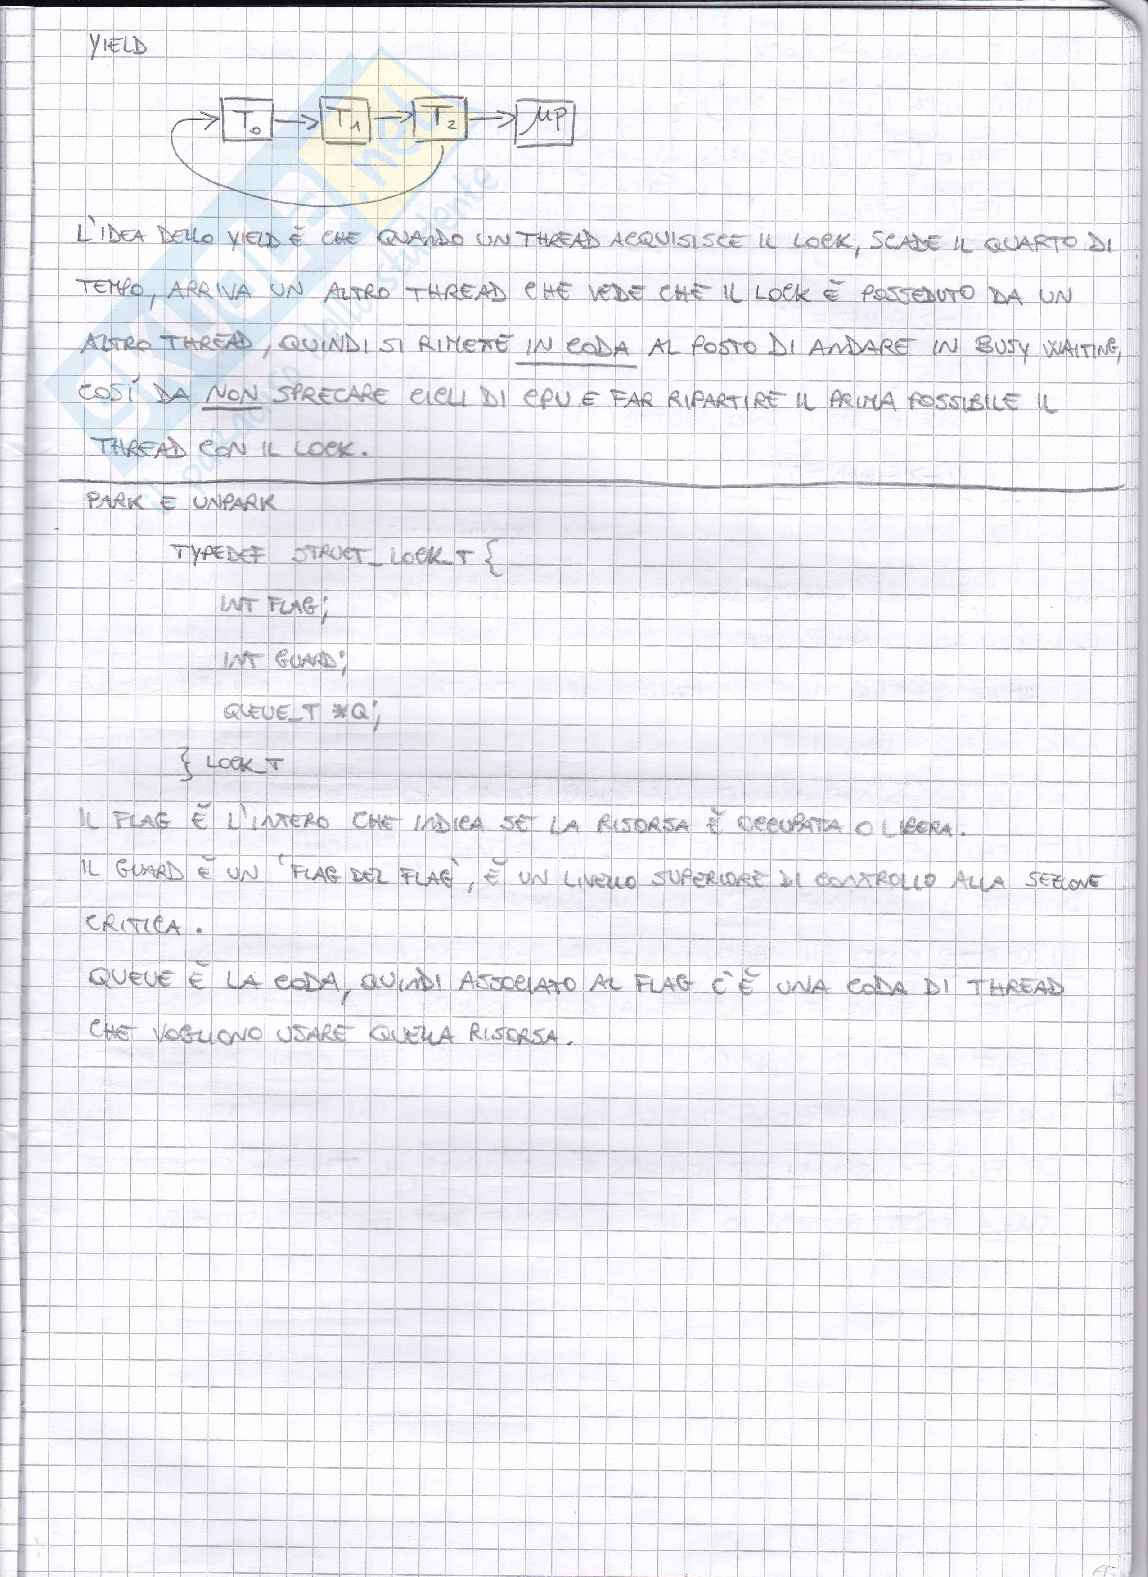 YIELD
T0 T1 T2 μP
L'IDEA DELLO YIELD È CHE QUANDO UN THREAD ACQUISISCE IL LOCK, SCADE IL QUARTO DI
TEMPO, ARRIVA UN ALTRO THREAD CHE VEDE CHE IL LOCK È POSSEDUTO DA UN
ALTRO THREAD, QUINDI SI RIMETTE IN CODA AL POSTO DI ANDARE IN BUSY WAITING,
COSÍ DA NON SPRECARE CICLI DI CPU E FAR RIPARTIRE IL PRIMA POSSIBILE IL
THREAD CON IL LOCK.
PARK E UNPARK
TYPEDEF STRUCT_LOCK_T {
INT FLAG;
INT GUARD;
QUEUE_T *Q;
} LOCK_T
IL FLAG È L'INTERO CHE INDICA SE LA RISORSA È OCCUPATA O LIBERA.
IL GUARD È UN 'FLAG DEL FLAG', È UN LIVELLO SUPERIORE DI CONTROLLO ALLA SEZIONE
CRITICA.
QUEUE È LA CODA, QUINDI ASSOCIATO AL FLAG C'È UNA CODA DI THREAD
CHE VOGLIONO USARE QUELLA RISORSA.